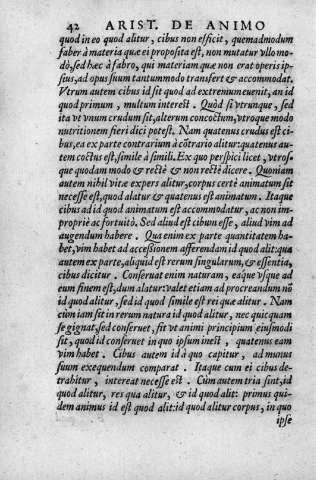 42 ARIST. DE ANIMO
quod in eo quod alitur, cibus non efficit, quemadmodum
faber à materia quæ ei proposita est, non mutatur vllo mo-
dò, sed hæc à fabro, qui materiam quæ non erat operis ip-
sius, ad opus suum tantummodo transfert & accommodat.
Vtrum autem cibus id sit quod ad extremum euenit, an id
quod primum, multum interest. Quòd si vtrunque, sed
ita vt vnum crudum sit, alterum concoctum, vtroque modo
nutritionem fieri dici potest. Nam quatenus crudus est ci-
bus, ea ex parte contrarium à cōtrario alitur: quatenus au-
tem coctus est, simile à simili. Ex quo perspici licet, vtros-
que quodam modo & rectè & non rectè dicere. Quoniam
autem nihil vitæ expers alitur, corpus certè animatum sit
necesse est, quod alatur & quatenus est animatum. Itaque
cibus ad id quod animatum est accommodatur, ac non im-
propriè ac fortuitò. Sed aliud est cibum esse, aliud vim ad
augendum habere. Qua enim ex parte quantitatem ha-
bet, vim habet ad accessionem afferendam id quod alit: qua
autem ex parte, aliquid est rerum singularum, & essentia,
cibus dicitur. Conseruat enim naturam, eaque vsque ad
eum finem est, dum alatur: valet etiam ad procreandum nō
id quod alitur, sed id quod simile est rei quæ alitur. Nam
cùm iam sit in rerum natura id quod alitur, nec quicquam
se gignat, sed conseruet, fit vt animi principium eiusmodi
sit, quod id conseruet in quo ipsum inest, quatenus eam
vim habet. Cibus autem id à quo capitur, ad munus
suum exequendum comparat. Itaque cum ei cibus de-
trahitur, intereat necesse est. Cùm autem tria sint, id
quod alitur, res qua alitur, & id quod alit: primus qui-
dem animus id est quod alit: id quod alitur corpus, in quo
ipse